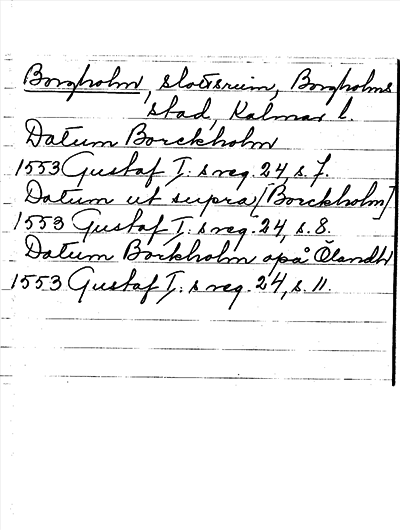 Borgholm, slottsruin, Borgholms
stad, Kalmar l.
Datum Borckholm
1553 Gustaf I:s reg. 24, s. 7.
Datum ut supra [Borckholm]
1553 Gustaf I:s reg. 24, s. 8.
Datum Borkholm opå Ölandh
1553 Gustaf I:s reg. 24, s. 11.